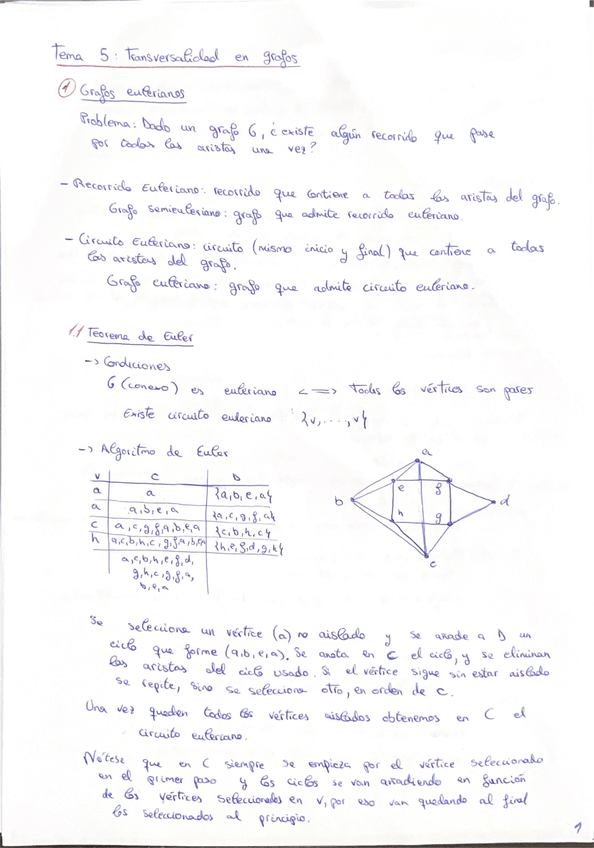 Tema 5: Transversalidad en grafos
1 Grafos eulerianos
Problema: Dado un grafo G, ¿existe algún recorrido que pase
por todas las aristas una vez?
- Recorrido Euleriano: recorrido que contiene a todas las aristas del grafo.
Grafo semieuleriano: grafo que admite recorrido euleriano.
- Circuito Euleriano: circuito (mismo inicio y final) que contiene a todas
las aristas del grafo.
Grafo euleriano: grafo que admite circuito euleriano.
1.1 Teorema de Euler
-> Condiciones
G (conexo) es euleriano <=> Todos los vértices son pares
Existe circuito euleriano {v,...,v}
-> Algoritmo de Euler
v C D
a a {a,b,e,a}
a a,b,e,a {a,c,g,f,a}
c a,c,g,f,a,b,e,a {c,b,h,c}
h a,c,b,h,c,g,f,a,b,e,a {h,e,f,d,g,h}
a,c,b,h,e,f,d,
g,h,c,g,f,a,
b,e,a
a
e f
b d
h g
c
Se selecciona un vértice (a) no aislado y se añade a D un
ciclo que forme (a,b,e,a). Se anota en C el ciclo, y se eliminan
las aristas del ciclo usado. Si el vértice sigue sin estar aislado
se repite, sino se selecciona otro, en orden de C.
Una vez queden todos los vértices aislados obtenemos en C el
circuito euleriano.
Nótese que en C siempre se empieza por el vértice seleccionado
en el primer paso y los ciclos se van añadiendo en función
de los vértices seleccionados en v, por eso van quedando al final
los seleccionados al principio.
1